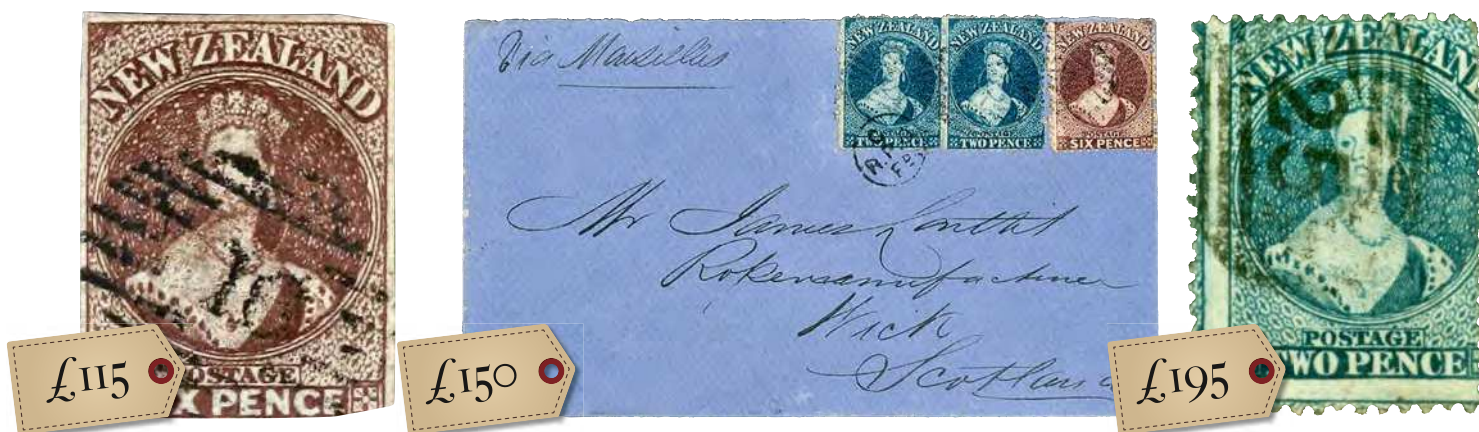 NEW ZEALAND
10
POSTAGE
X PENCE
£115
Via Marseilles
NEW ZEALAND
POSTAGE
TWO PENCE
NEW ZEALAND
POSTAGE
TWO PENCE
NEW ZEALAND
POSTAGE
SIX PENCE
Mr James
Wick
Scotland
£150
NEW ZEALAND
POSTAGE
WO PENCE
£195